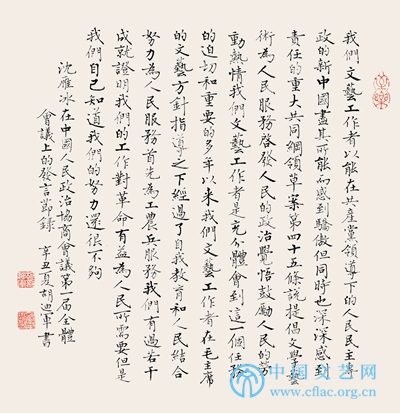 我們文藝工作者以能在共產黨領導下的人民民主專
政的新中國盡其所能而感到驕傲但同時也深深感到
責任的重大共同綱領草案第四十五條說提倡文學藝
術為人民服務啓發人民的政治覺悟鼓勵人民的勞
動熱情我們文藝工作者是充分體會到這一個任務
的迫切和重要的多年以來我們文藝工作者在毛主席
的文藝方針指導之下經過了自我教育和人民結合
努力為人民服務首先為工農兵服務我們有過若干
成就證明我們的工作對革命有益為人民所需要但是
我們自己知道我們的努力還很不夠
沈雁冰在中國人民政治協商會議第一屆全體
會議上的發言節錄 辛丑夏胡迪軍書
中国文艺网
www.cflac.org.cn